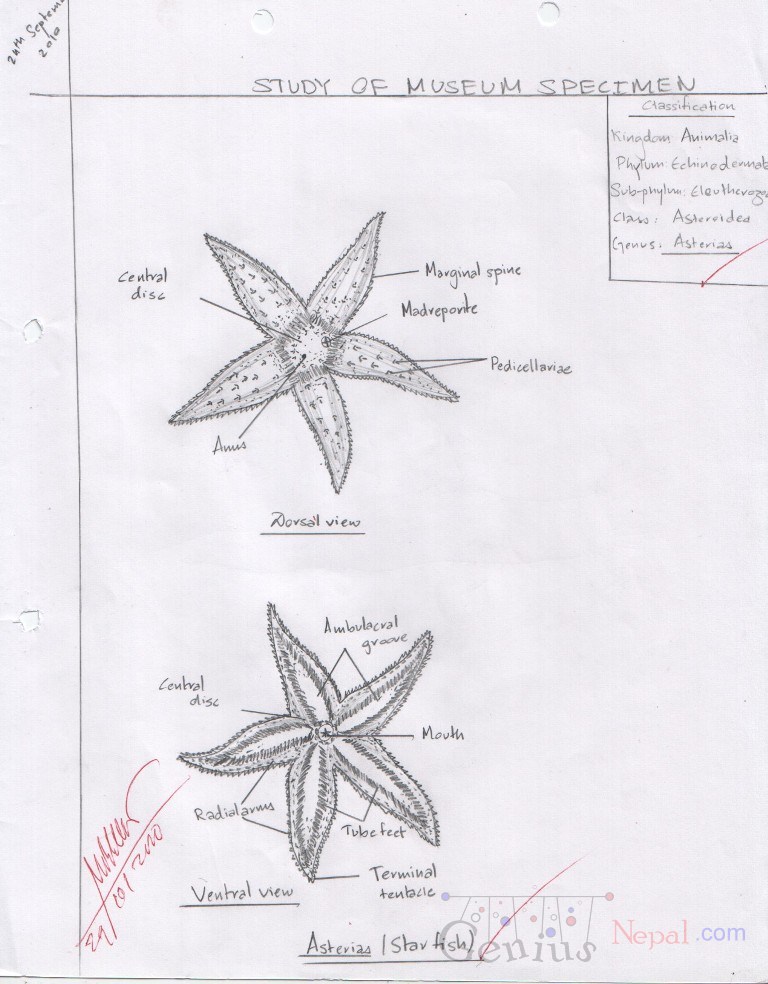 24th Septem
2010
STUDY OF MUSEUM SPECIMEN
Classification
Kingdom: Animalia
Phylum: Echinodermat
Sub-phylum: Eleutherozoa
Class: Asteroidea
Genus: Asterias
Central
disc
Marginal spine
Madreporite
Pedicellariae
Anus
Dorsal view
Ambulacral
groove
Central
disc
Mouth
Radial arms
Tube feet
Terminal
tentacle
Ventral view
Asterias (Star fish)
Genius Nepal.com